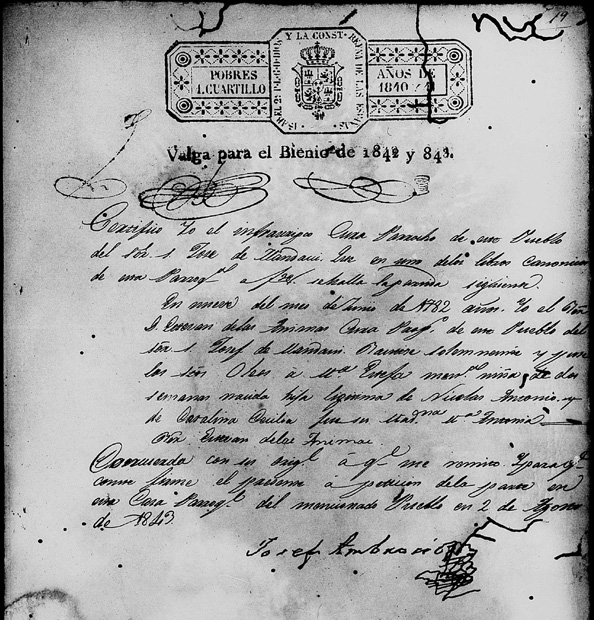 19
ISABEL 2ª P. L. G. DE DIOS Y LA CONST. REYNA DE LAS ESPAÑAS
POBRES AÑOS DE
1. CUARTILLO 1840 y 41
Valga para el Bienio de 1842 y 843.
Certifico Yo el infrascripto Cura Parrocho de este Pueblo
del Sor. S. Jose de que en uno delos libros Canonicos
de esta Parroql. a f se halla la partida siguiente.
En nueve del mes de Junio de 1782 años. Yo el Bor.
D. Estevan delas Animas Cura Parroo. de este Pueblo del
Sor. S. Josef de Bautize solemnemte. y puse
los stos. Oleos â Ma. niña, de dos
semanas nacida hija legitima de Nicolas Antonio y
de Carolina Cecilia fue su Madna. Ma. Antonia
Bor. Estevan delas Animas
Concuerda con su origl. â ql. me remito. Y para qe.
conste firmé el presente â peticion dela parte en
esta Casa Parroql. del mencionado Pueblo en 2 de Agosto
de 1843
Josef Ambrocio